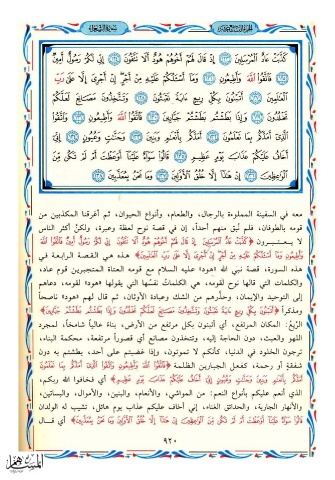 كَذَّبَتْ عَادٌ الْمُرْسَلِينَ ﴿١٢٣﴾ إِذْ قَالَ لَهُمْ أَخُوهُمْ هُودٌ أَلَا تَتَّقُونَ ﴿١٢٤﴾ إِنِّي لَكُمْ رَسُولٌ أَمِينٌ
﴿١٢٥﴾ فَاتَّقُوا اللَّهَ وَأَطِيعُونِ ﴿١٢٦﴾ وَمَا أَسْأَلُكُمْ عَلَيْهِ مِنْ أَجْرٍ إِنْ أَجْرِيَ إِلَّا عَلَى رَبِّ
الْعَالَمِينَ ﴿١٢٧﴾ أَتَبْنُونَ بِكُلِّ رِيعٍ آيَةً تَعْبَثُونَ ﴿١٢٨﴾ وَتَتَّخِذُونَ مَصَانِعَ لَعَلَّكُمْ
تَخْلُدُونَ ﴿١٢٩﴾ وَإِذَا بَطَشْتُمْ بَطَشْتُمْ جَبَّارِينَ ﴿١٣٠﴾ فَاتَّقُوا اللَّهَ وَأَطِيعُونِ ﴿١٣١﴾ وَاتَّقُوا
الَّذِي أَمَدَّكُمْ بِمَا تَعْلَمُونَ ﴿١٣٢﴾ أَمَدَّكُمْ بِأَنْعَامٍ وَبَنِينَ ﴿١٣٣﴾ وَجَنَّاتٍ وَعُيُونٍ ﴿١٣٤﴾ إِنِّي
أَخَافُ عَلَيْكُمْ عَذَابَ يَوْمٍ عَظِيمٍ ﴿١٣٥﴾ قَالُوا سَوَاءٌ عَلَيْنَا أَوَعَظْتَ أَمْ لَمْ تَكُنْ مِنَ
الْوَاعِظِينَ ﴿١٣٦﴾ إِنْ هَذَا إِلَّا خُلُقُ الْأَوَّلِينَ ﴿١٣٧﴾ وَمَا نَحْنُ بِمُعَذَّبِينَ ﴿١٣٨﴾
معه في السفينة المملوءة بالرجال، والطعام، وأنواع الحيوان، ثم أغرقنا المكذبين من
قومه بالطوفان، فلم يبق منهم أحداً، إن في قصة نوح لعظة وعبرة، ولكنَّ أكثر الناس
لا يعتبرون ﴿كَذَّبَتْ عَادٌ الْمُرْسَلِينَ إِذْ قَالَ لَهُمْ أَخُوهُمْ هُودٌ أَلَا تَتَّقُونَ إِنِّي لَكُمْ رَسُولٌ أَمِينٌ فَاتَّقُوا اللَّهَ
وَأَطِيعُونِ وَمَا أَسْأَلُكُمْ عَلَيْهِ مِنْ أَجْرٍ إِنْ أَجْرِيَ إِلَّا عَلَى رَبِّ الْعَالَمِينَ﴾ هذه هي القصة الرابعة في
هذه السورة، قصة نبي الله «هود» عليه السلام مع قومه العتاة المتجبرين قوم عاد،
والكلمات التي قالها نوح لقومه، هي الكلمات نفسُها التي يقولها «هود» لقومه، دعاهم
إلى التوحيد والإيمان، وحذَّرهم من الشرك وعبادة الأوثان، ثم قال لهم «هود» ناصحاً
ومذكراً ﴿أَتَبْنُونَ بِكُلِّ رِيعٍ آيَةً تَعْبَثُونَ وَتَتَّخِذُونَ مَصَانِعَ لَعَلَّكُمْ تَخْلُدُونَ وَإِذَا بَطَشْتُمْ بَطَشْتُمْ جَبَّارِينَ﴾
الرِّيعُ: المكان المرتفع، أي أتبنون بكل مرتفع من الأرض، بناءً عالياً شامخاً، لمجرد
اللهو والعبث، دون الحاجة إليه، وتتخذون مصانع أي قصوراً مرتفعة، محكمة البناء،
ترجون الخلود في الدنيا، كأنكم لا تموتون، وإذا غضبتم على أحد، بطشتم به دون
شفقةٍ أو رحمة، كفعل الجبابرة الظلمة ﴿فَاتَّقُوا اللَّهَ وَأَطِيعُونِ وَاتَّقُوا الَّذِي أَمَدَّكُمْ بِمَا تَعْلَمُونَ
أَمَدَّكُمْ بِأَنْعَامٍ وَبَنِينَ وَجَنَّاتٍ وَعُيُونٍ إِنِّي أَخَافُ عَلَيْكُمْ عَذَابَ يَوْمٍ عَظِيمٍ﴾ أي فخافوا الله ربكم،
الذي أنعم عليكم بأنواع النعم: من المواشي، والأنعام، والبنين، والأموال، والبساتين،
والأنهار الجارية، والحدائق الغناء، إني أخاف عليكم عذاب يوم هائل، تشيب له الولدان
﴿قَالُوا سَوَاءٌ عَلَيْنَا أَوَعَظْتَ أَمْ لَمْ تَكُنْ مِنَ الْوَاعِظِينَ إِنْ هَذَا إِلَّا خُلُقُ الْأَوَّلِينَ وَمَا نَحْنُ بِمُعَذَّبِينَ﴾ أي قال
٩٢٠